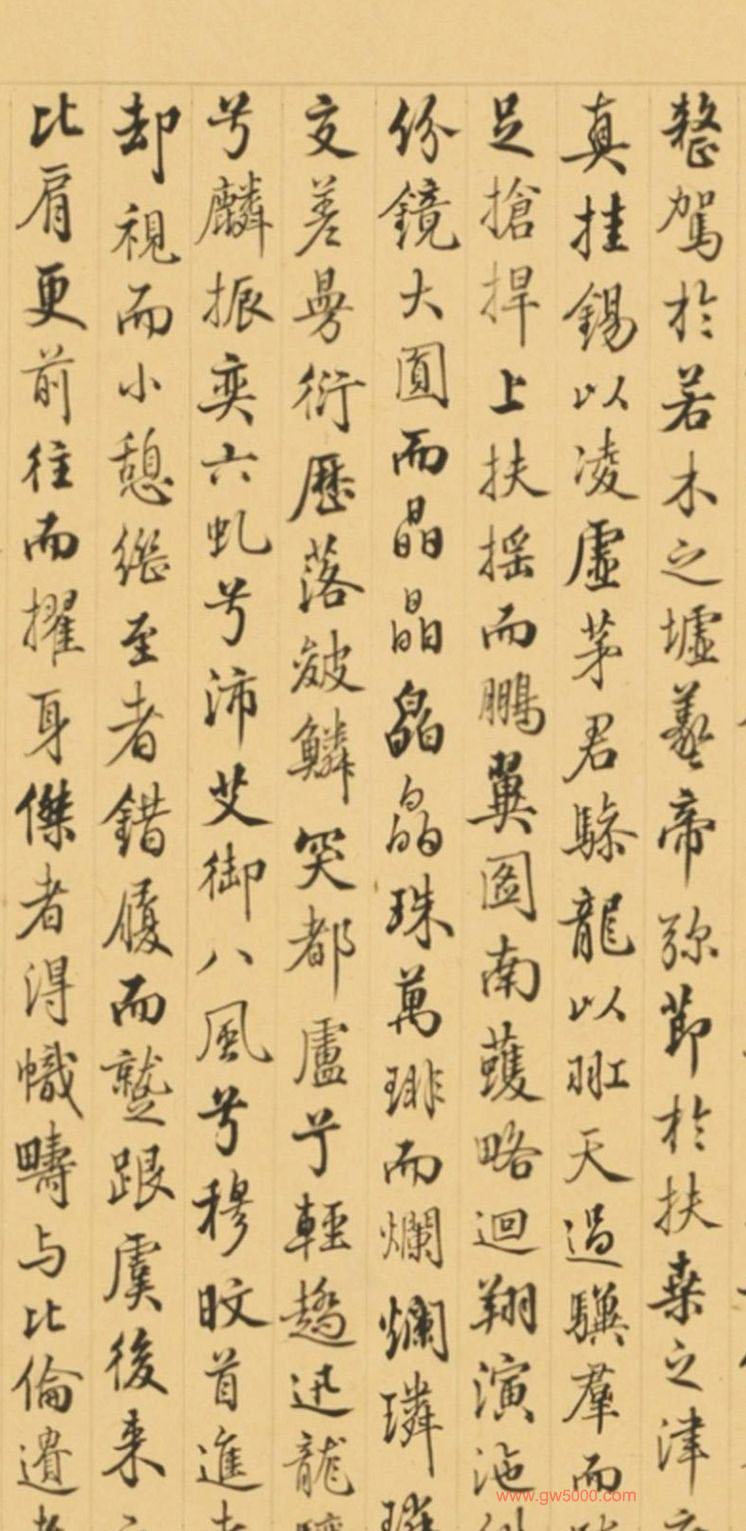 整駕於若木之墟羲帝弥節於扶桑之津
真挂錫以凌虛茅君驂龍以羾天過驥羣而
足搶捍上扶摇而鵬翼圖南蠖略迴翔演沲
份鏡大圓而晶晶晶晶珠萬琲而爛爛璘
交差曼衍歷落皴鱗突都盧兮輕趫迅龍
兮麟振奕六虬兮沛艾御八風兮穆旼首進
却視而小憩继至者錯履而蹵跟虞後来
比肩更前往而擢身傑者得幟疇与比倫遺
www.gw5000.com